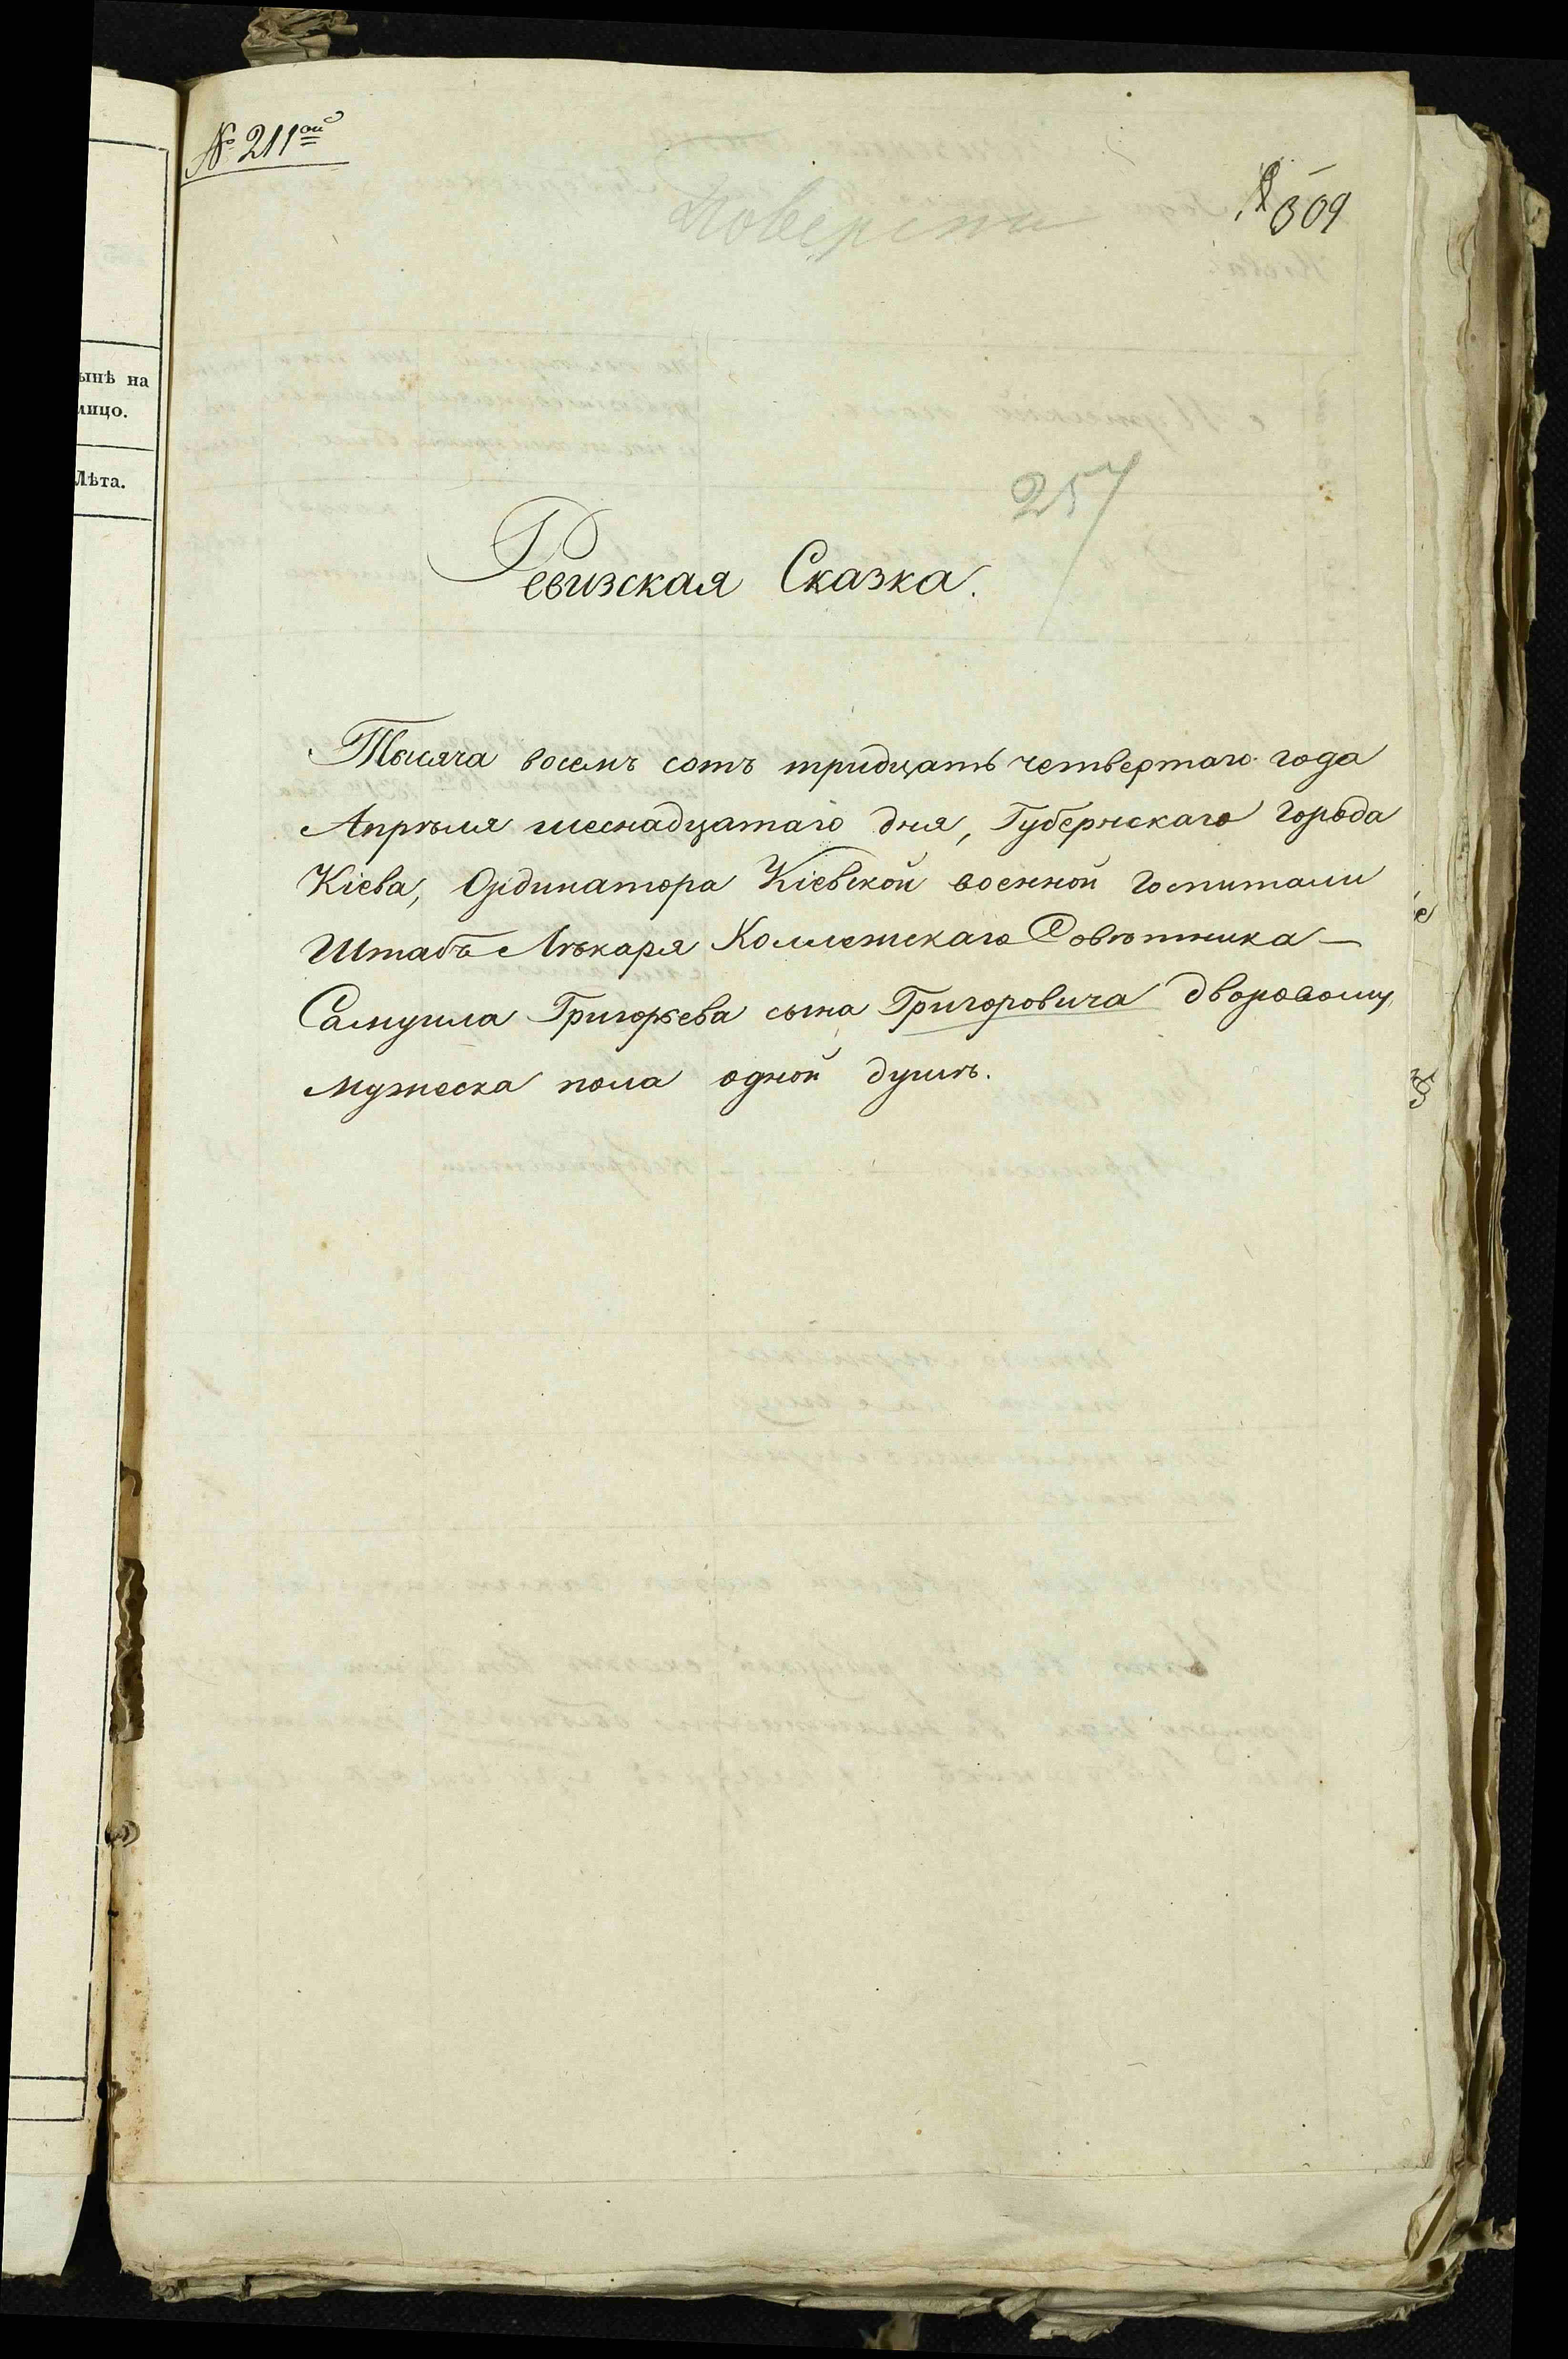 № 211ой
309
257
Ревизская Сказка.
Тысяча восемъ сотъ тридцать четвертаго года
Апрѣля шеснадцатаго дня, Губернскаго города
Кіева, Ординатора Кіевской военной госпитали
Штабъ Лѣкаря Коллежскаго Совѣтника —
Самуила Григорьева сына Григоровича дворовому
мужеска пола одной душѣ.
ынѣ на
лицо.
Лѣта.